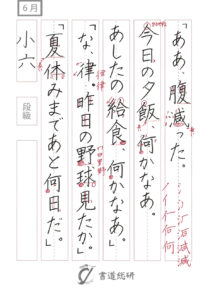 6月
「ああ、腹減った。
今日の夕飯、何かなあ。
あしたの給食、何かなあ。
「な、律。昨日の野球見たか。
「夏休みまであと何日だ。
段級
小六
書道総研